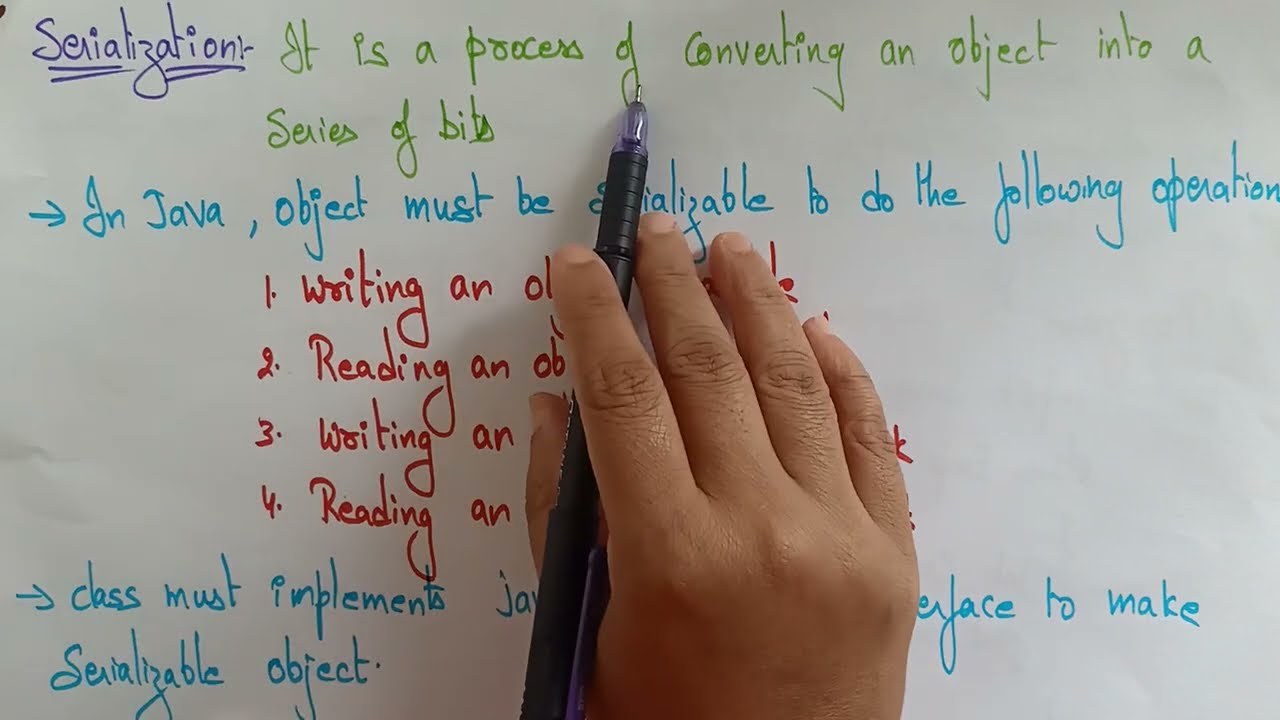 Serialization:- It is a process of converting an object into a
Series of bits
→ In Java, object must be Serializable to do the following operation
1. Writing an
2. Reading an
3. Writing an
4. Reading an
→ class must implements to make
Serializable object.